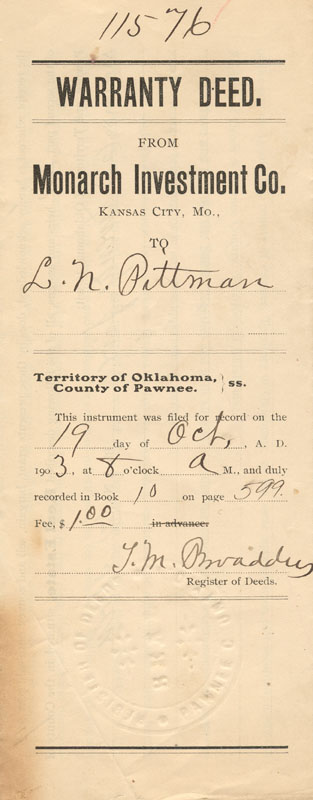 11576
WARRANTY DEED.
FROM
Monarch Investment Co.
KANSAS CITY, MO.,
TO
L. N. Pittman
Territory of Oklahoma,
County of Pawnee. } ss.
This instrument was filed for record on the
19 day of Oct, , A. D.
190 3, at 8 o'clock a M., and duly
recorded in Book 10 on page 599.
Fee, $ 1.00 in advance.
T. M. Broaddus
Register of Deeds.